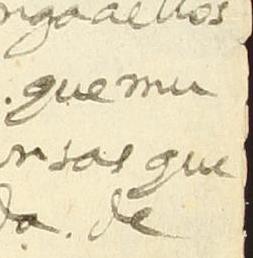 ngaaellos
. que mu
nsas que
da. de